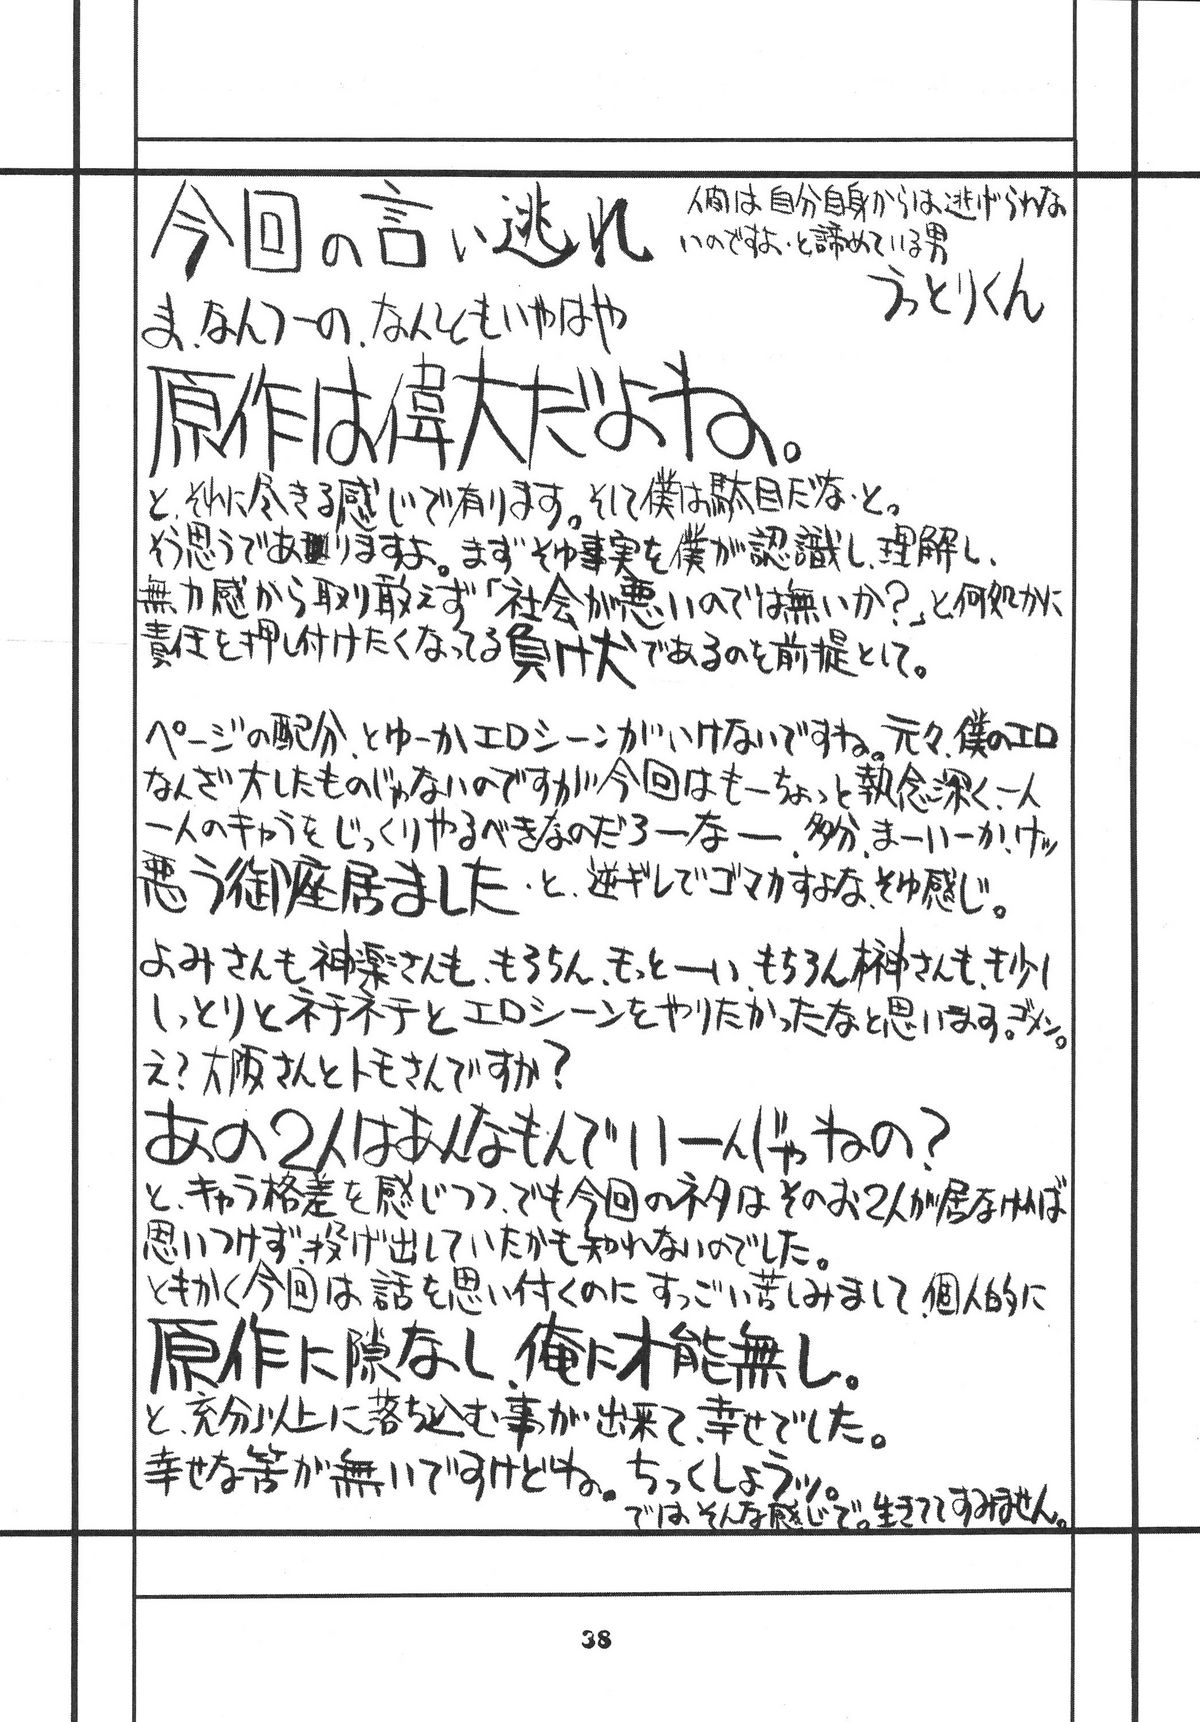 今回の言い逃れ
人間は自分自身からは逃げられな
いのですよ・と諦めている男
うっとりくん
ま、なんつーの、なんともいやはや
原作は偉大だよね。
と、それに尽きる感じで有ります。そして僕は駄目だな・と。
そう思うでありますよ。まずそゆ事実を僕が認識し、理解し、
無力感から取り敢えず「社会が悪いのでは無いか?」と何処かに
責任を押し付けたくなってる負け犬であるのを前提として。
ページの配分、とゆーかエロシーンがいけないですね。元々、僕のエロ
なんざ大したものじゃないのですが今回はもーちょっと執念深く、一人
一人のキャラをじっくりやるべきなのだろーなー、多分、まーいーか、けッ
悪う御座居ました・と、逆ギレでゴマカすよな、そゆ感じ。
よみさんも神楽さんも、もろちん、もっとーい、もちろん榊さんも、も少し
しっとりとネチネチとエロシーンをやりたかったなと思います。ゴメン。
え?大阪さんとトモさんですか?
あの2人はあんなもんでいーんじゃねの?
と、キャラ格差を感じつつ、でも今回のネタはそのお2人が居なければ
思いつけず投げ出していたかも知れないのでした。
ともかく今回は話を思い付くのにすっごい苦しみまして、個人的に
原作に隙なし、俺に才能無し。
と、充分以上に落ち込む事が出来て、幸せでした。
幸せな筈が無いですけどね。ちっくしょうッ。
では、そんな感じで。生きててすみません。
38